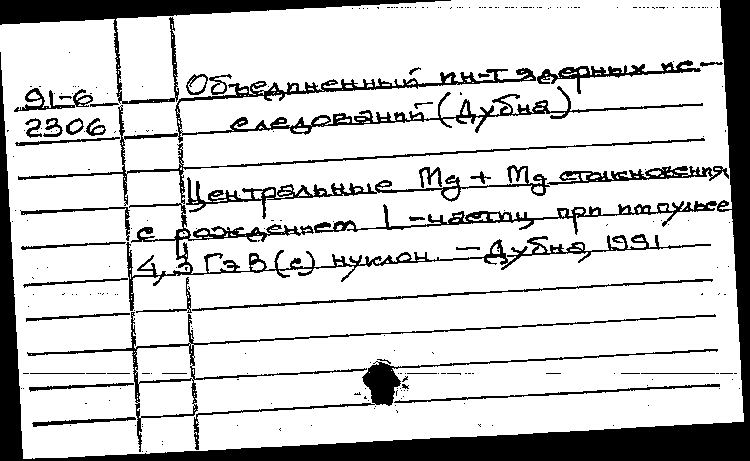 91-6
2306
Объединенный ин-т ядерных ис-
следований (Дубна)
Центральные Mg + Mg столкновения
с рождением L-частиц при импульсе
4,3 ГэВ (с) нуклон. – Дубна, 1991